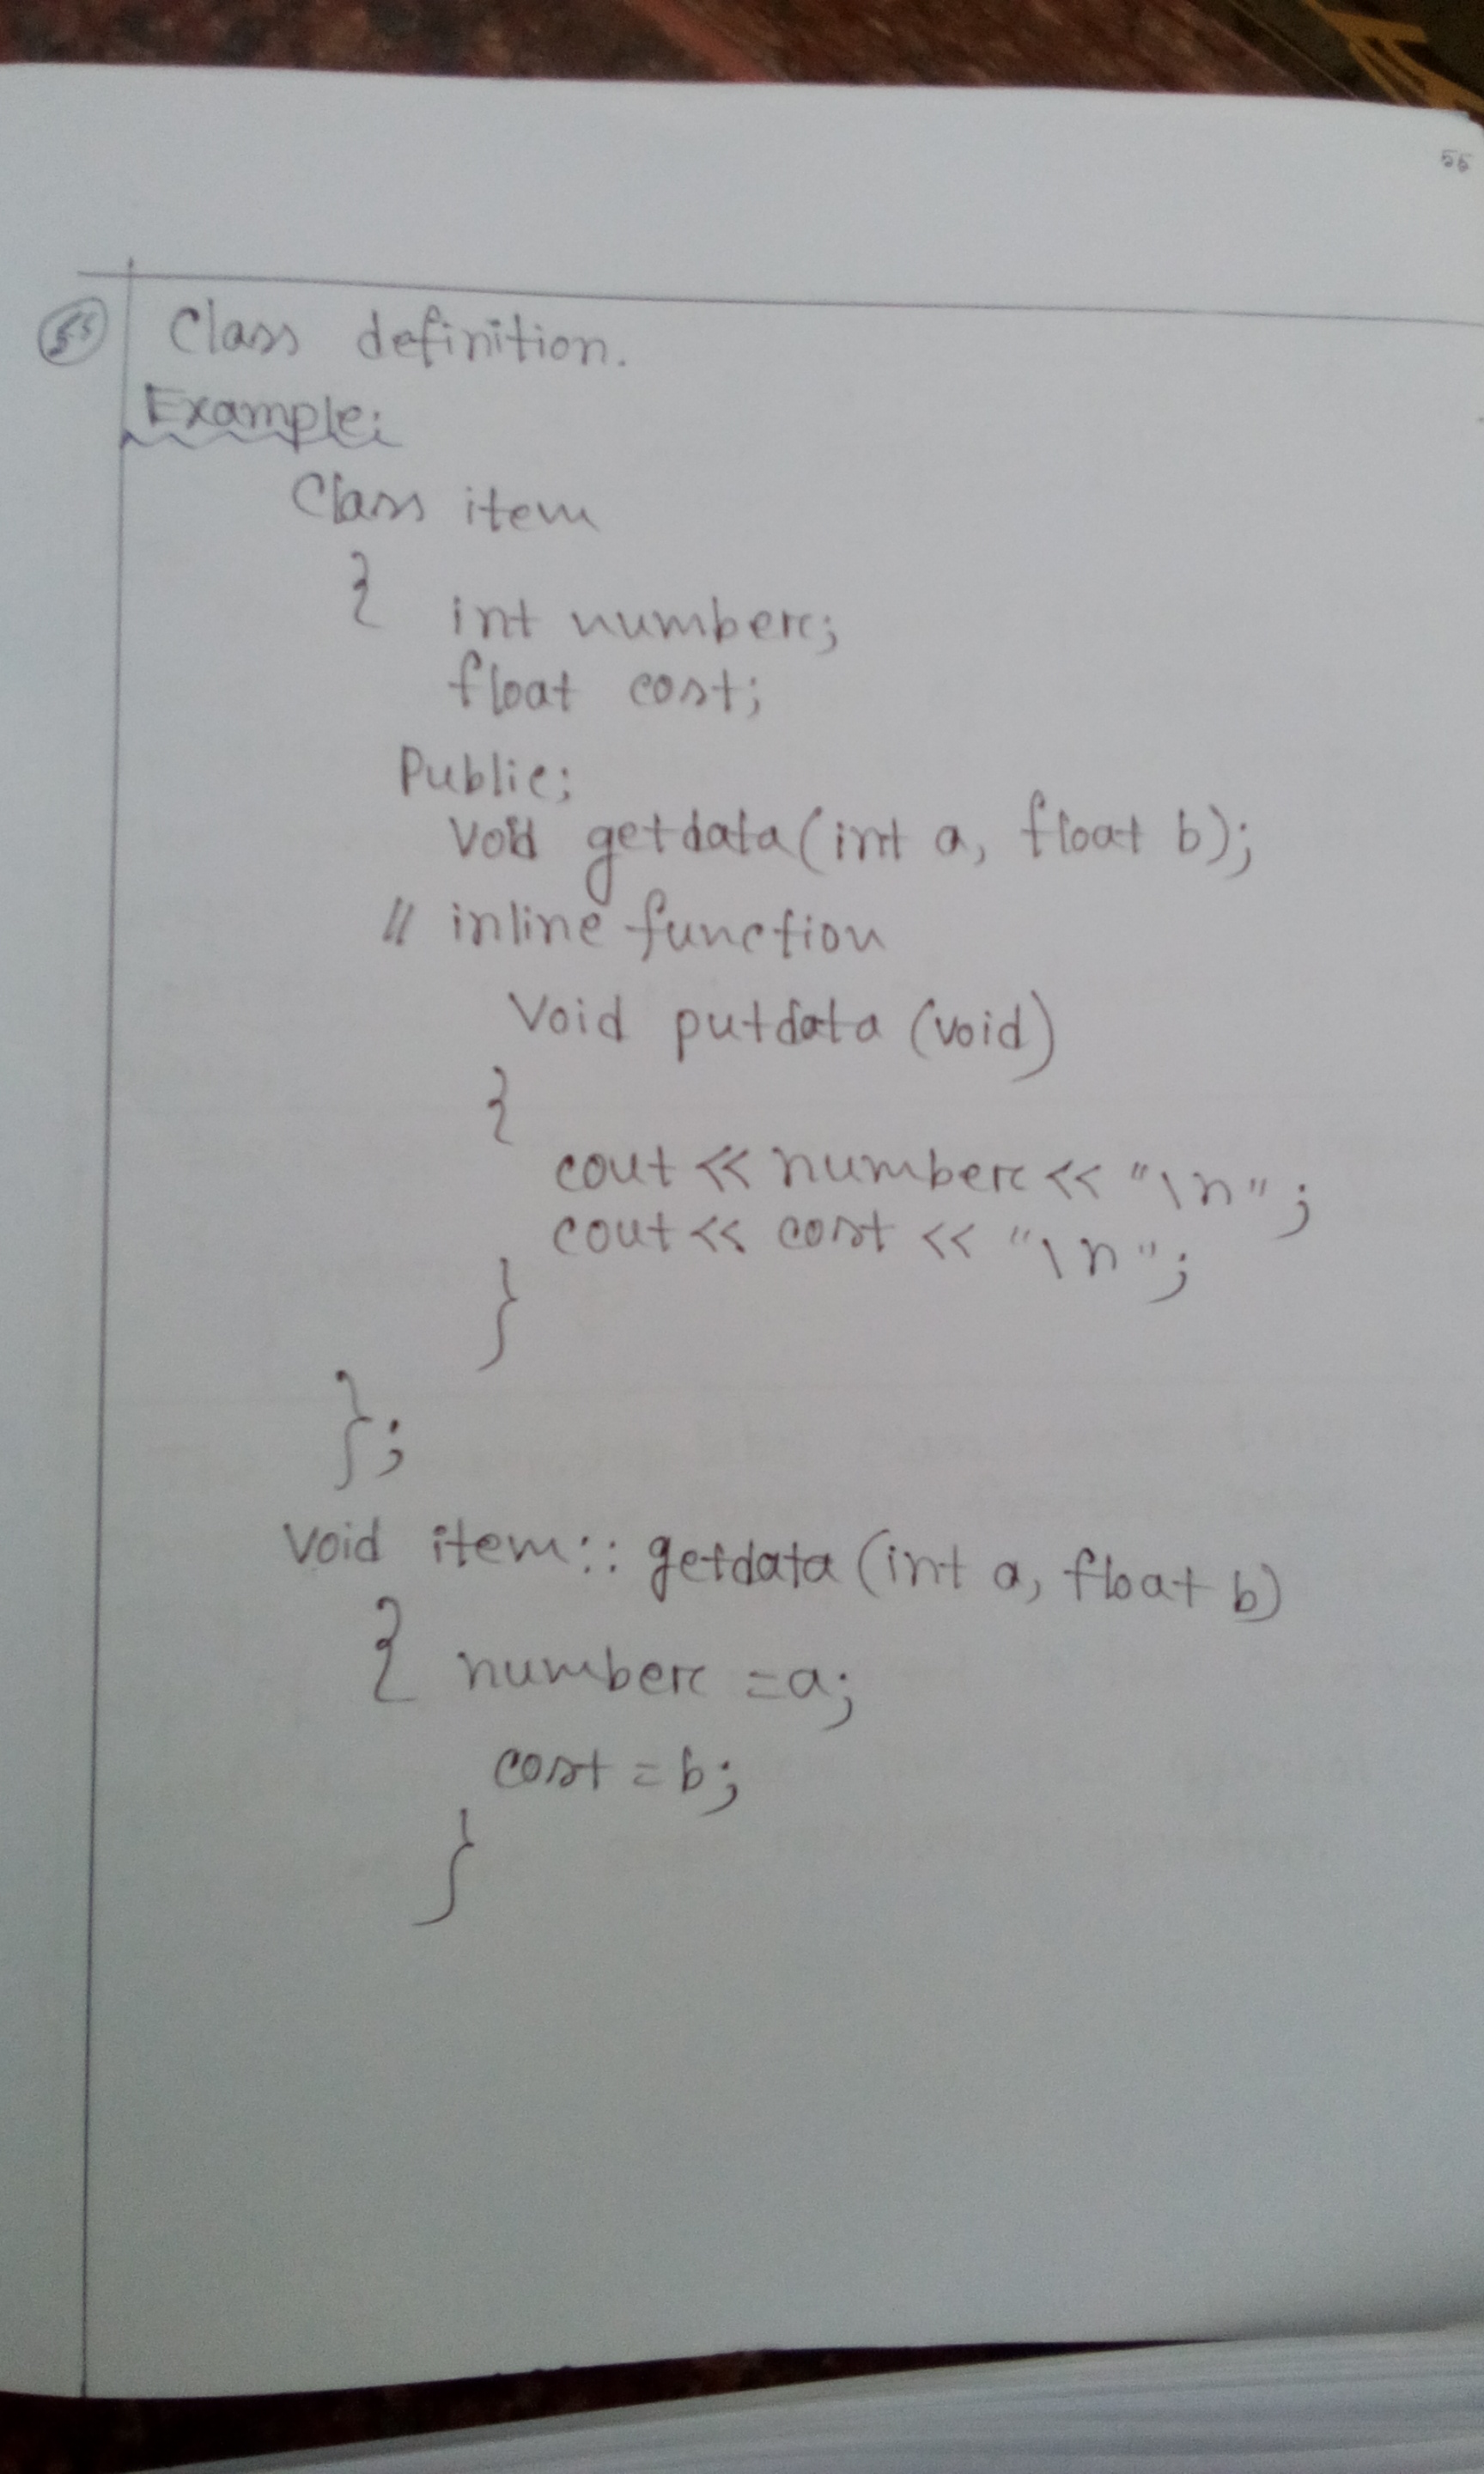 55
55 Class definition.
Example:
Class item
{ int number;
float cost;
Public:
Void getdata(int a, float b);
// inline function
Void putdata (void)
{
cout << number << "\n";
cout << cost << "\n";
}
};
Void item:: getdata (int a, float b)
{ number = a;
cost = b;
}